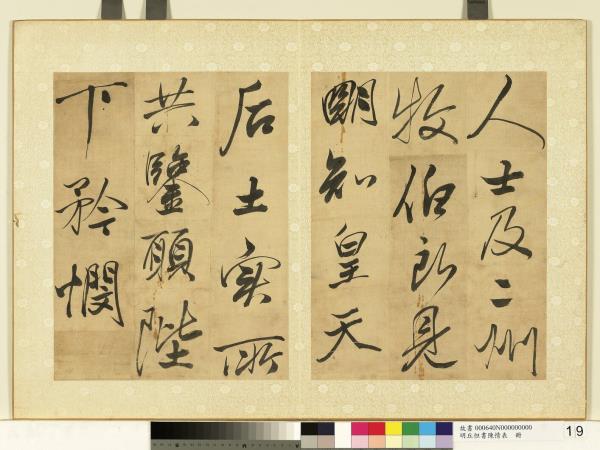 人士及二州
牧伯所見
明知皇天
后土實所
共鑒願陛
下矜憫
故書 000640N000000000
明丘恒書陳情表 冊
19